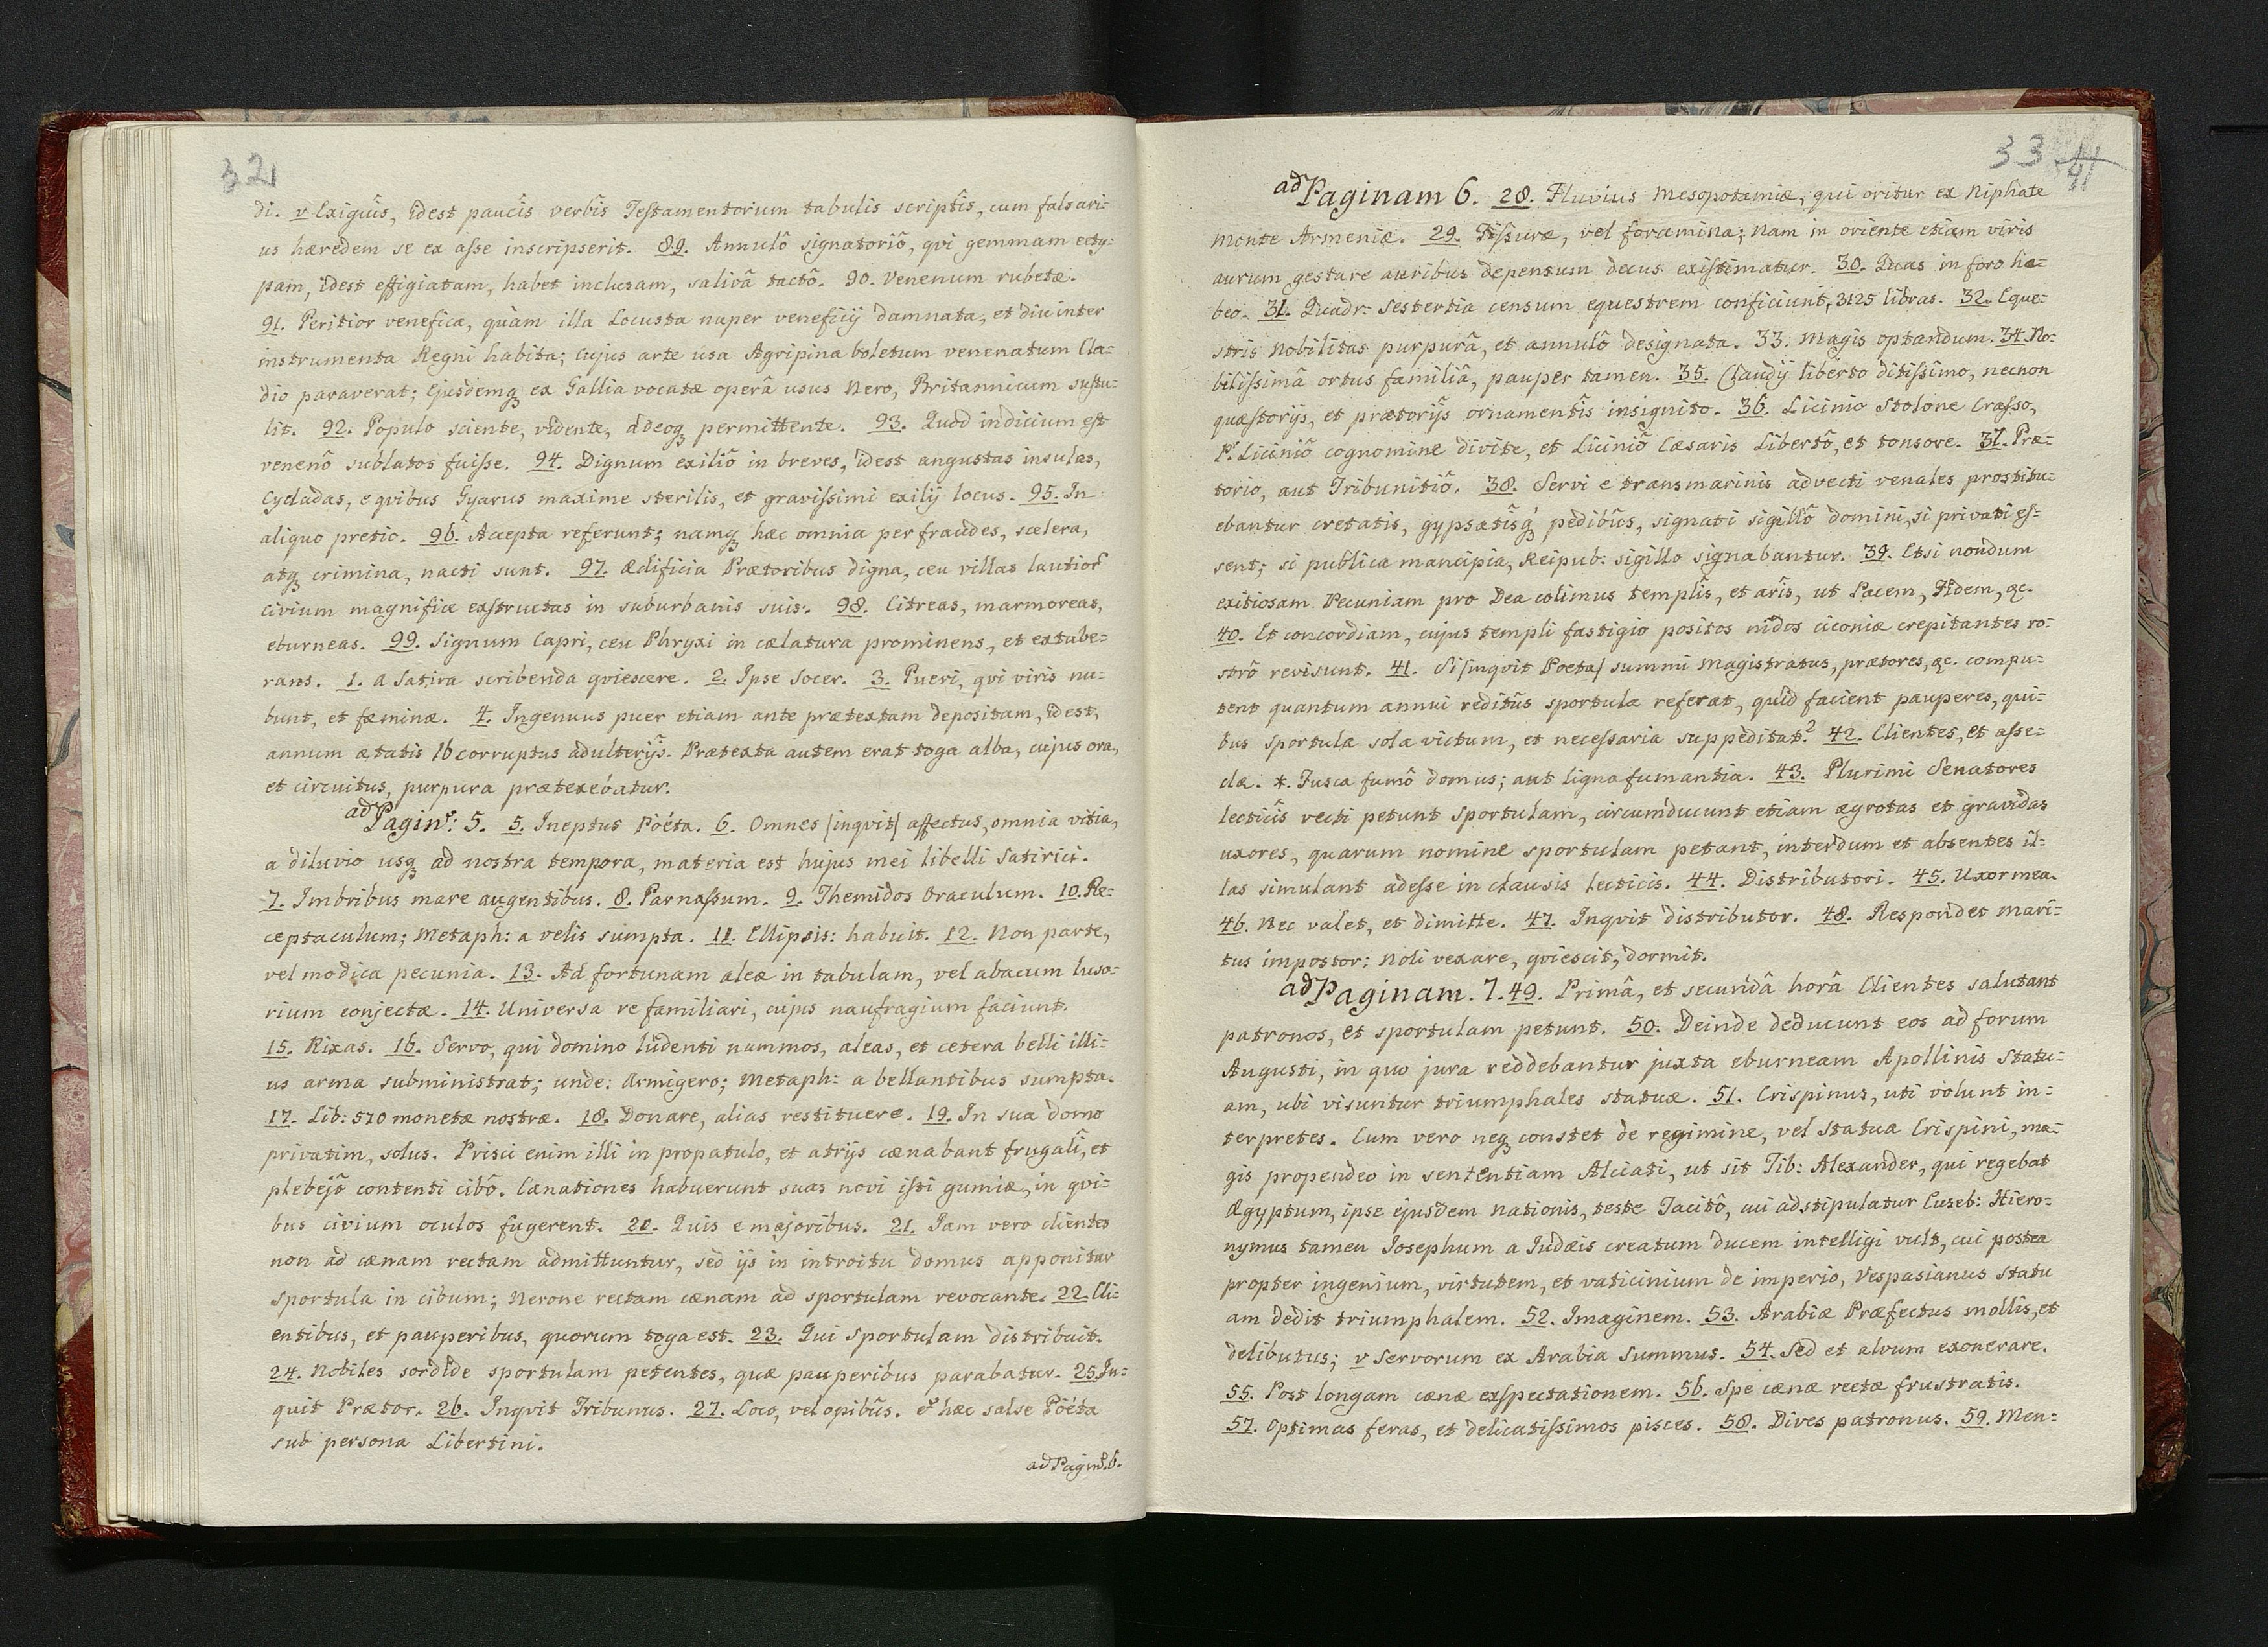 32
di. v Exiguîs, idest paucîs verbis Testamentorum tabulis scriptîs, cum falsari=
us hæredem se ex asse inscripserit. 89. Annulô signatoriô, qvi gemmam ecty=
pam, idest effigiatam, habet inclusam, salivâ tactô. 90. Venenum rubetæ.
91. Peritior venefica, quàm illa Locusta nuper veneficÿ damnata, et diu inter
instrumenta Regni habita; cujus arte usa Agripina boletum venenatum Cla=
dio paraverat; Ejusdemq ex Gallia vocatæ operâ usus Nero, Britannicum sustu=
lit. 92. Populo sciente, vidente, adeoq permittente. 93. Quod indicium est
venenô sublatos fuisse. 94. Dignum exiliô in breves, idest angustas insulas,
Cycladas, e qvibus Gyarus maxime sterilis, et gravissimi exilÿ locus. 95. In
aliquo pretio. 96. Accepta referunt; namq hæc omnia per fraudes, scelera,
atq crimina, nacti sunt. 97. Ædificia Prætoribus digna, ceu villas lautior
civium magnifice exstructas in suburbanis suis. 98. Citreas, marmoreas,
eburneas. 99. Signum Capri, ceu Phryxi in cælatura prominens, et extube=
rans. 1. a Satira scribenda qviescere. 2. Ipse Socer. 3. Pueri, qvi viris nu=
bunt, et fæminæ. 4. Ingenuus puer etiam ante prætextam depositam, idest,
annum ætatis 16 corruptus adulterÿs. Prætexta autem erat toga alba, cujus ora,
et circuitus, purpura prætexebatur.
ad Pagin: 5. 5. Ineptus Poëta. 6. Omnes /inqvit/ affectus, omnia vitia,
a diluvio usq ad nostra tempora, materia est hujus mei libelli Satirici.
7. Imbribus mare augentibus. 8. Parnassum. 9. Themidos Oraculum. 10. Re=
ceptaculum; Metaph: a velis sumpta. 11. Ellipsis: habuit. 12. Non parte,
vel modica pecunia. 13. Ad fortunam aleæ in tabulam, vel abacum luso=
rium conjectæ. 14. Universa re familiari, cujus naufragium faciunt.
15. Rixas. 16. Servo, qui domino ludenti nummos, aleas, et cetera belli illi=
us arma subministrat; unde: Armigero; Metaph: a bellantibus sumpta.
17. Lib: 510 monetæ nostræ. 18. Donare, alias restituere. 19. In sua domo
privatim, solus. Prisci enim illi in propatulo, et atrÿs cænabant frugali, et
plebejô contenti cibô. Cænationes habuerunt suas novi isti gumiæ, in qvi=
bus civium oculos fugerent. 20. Quis e majoribus. 21. Jam vero clientes
non ad cænam rectam admittuntur, sed ÿs in introitu domus apponitur
sportula in cibum; Nerone rectam cænam ad sportulam revocante. 22. Cli=
entibus, et pauperibus, quorum toga est. 23. Qui sportulam distribuit.
24. Nobiles sordide sportulam petentes, quæ pauperibus parabatur. 25. In=
quit Prætor. 26. Inqvit Tribunus. 27. Loco, vel opibûs. & hæc salse Poëta
sub persona Libertini.
ad Pagin. 6.
33 41
ad Paginam 6. 28. Fluvius Mesopotamiæ, qui oritur ex Niphate
monte Armeniæ. 29. Fissuræ, vel foramina; Nam in oriente etiam viris
aurum gestare auribus depensum decus existimatur. 30. Quas in foro ha=
beo. 31. Quadr: Sestertia censum equestrem conficiunt, 3125 libras. 32. Eque=
stris Nobilitas purpurâ, et annulô designata. 33. Magis optandum. 34. No=
bilissimâ ortus familiâ, pauper tamen. 35. Claudÿ liberto ditissimo, necnon
quæstorÿs, et prætorÿs ornamentîs insignito. 36. Licinio Stolone Crasso,
P. Liciniô cognomine divite, et Liciniô Cæsaris Libertô, et tonsore. 37. Præ=
torio, aut Tribunitiô. 38. Servi e transmarinis advecti venales prostitu=
ebantur cretatis, gypsatisq pedibûs, signati sigillô domini, si privati es=
sent; si publica mancipia, Reipub: sigillo signabantur. 39. Etsi nondum
exitiosam Pecuniam pro Dea colimus templîs, et arîs, ut Pacem, Fidem, &c.
40. Et concordiam, cujus templi fastigio positos nidos ciconiæ crepitantes ro=
strô revisunt. 41. Si /inqvit Poeta/ summi Magistratus, prætores, &c. compu=
tent quantum annui reditûs sportula referat, quid facient pauperes, qui=
bus sportula sola victum, et necessaria suppeditat? 42. Clientes, et asse=
clæ. *. Fusca fumô domus; aut ligna fumantia. 43. Plurimi Senatores
lecticîs vecti petunt sportulam, circumducunt etiam ægrotas et gravidas
uxores, quarum nomine sportulam petant, interdum et absentes il=
las simulant adesse in clausis lecticis. 44. Distributori. 45. Uxor mea.
46. Nec valet, et dimitte. 47. Inqvit distributor. 48. Respondet mari=
tus impostor: Noli vexare, qviescit, dormit.
ad Paginam. 7. 49. Primâ, et secundâ horâ Clientes salutant
patronos, et sportulam petunt. 50. Deinde deducunt eos ad forum
Augusti, in quo jura reddebantur juxta eburneam Apollinis Statu=
am, ubi visuntur triumphales statuæ. 51. Crispinus, uti volunt in=
terpretes. Cum vero neq constet de regimine, vel statua Crispini, ma=
gis propendeo in sententiam Alciati, ut sit Tib: Alexander, qui regebat
Ægyptum, ipse ejusdem Nationis, teste Tacitô, cui adstipulatur Euseb: Hiero=
nymus tamen Josephum a Judæis creatum ducem intelligi vult, cui postea
propter ingenium, virtutem, et vaticinium de imperio, Vespasianus statu
am dedit triumphalem. 52. Imaginem. 53. Arabiæ Præfectus mollis, et
delibutus; v Servorum ex Arabia Summus. 54. Sed et alvum exonerare.
55. Post longam cænæ exspectationem. 56. Spe cænæ rectæ frustratis.
57. Optimas feras, et delicatissimos pisces. 58. Dives patronus. 59. Men=